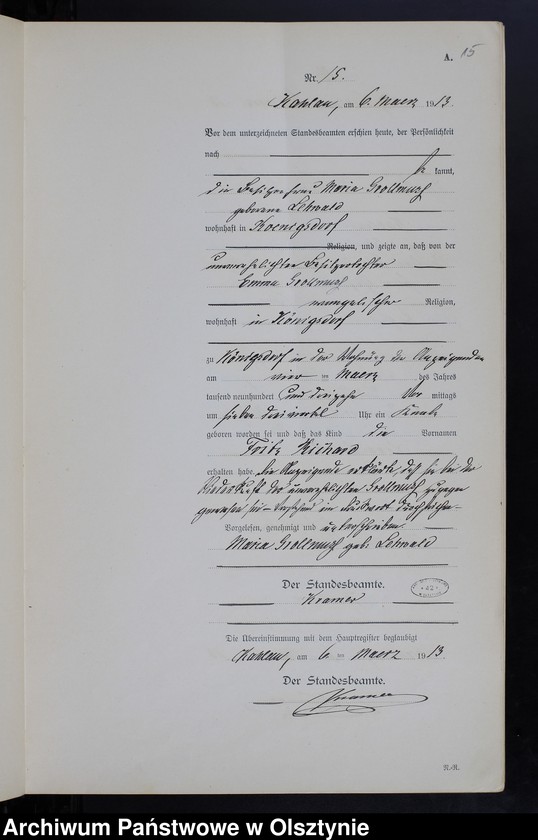 A. 15
Nr. 15.
Kahlau, am 6. Maerz 1913.
Vor dem unterzeichneten Standesbeamten erschien heute, der Persönlichkeit
nach
kannt,
die Besitzerfrau Maria Grollmusz
geborene Lehwald
wohnhaft in Koenigsdorf
Religion, und zeigte an, daß von der
unverehelichten Besitzertochter
Emma Grollmusz
evangelischer Religion,
wohnhaft in Königsdorf
zu Königsdorf in der Wohnung der Anzeigenden
am vier ten Maerz des Jahres
tausend neunhundert und dreizehn Vor mittags
um sieben dreiviertel Uhr ein Knabe
geboren worden sei und daß das Kind die Vornamen
Fritz Richard
erhalten habe. Die Anzeigende erklärte daß sie bei der
Niederkunft der unverehelichten Grollmusz zugegen
gewesen sei – Vorstehend ein Druckwort durchstrichen –
Vorgelesen, genehmigt und unterschrieben.
Maria Grollmusz geb: Lehwald
Der Standesbeamte.
Kramer
Die Übereinstimmung mit dem Hauptregister beglaubigt
Kahlau, am 6 ten Maerz 1913.
Der Standesbeamte.
Kramer
N.-R.
Archiwum Państwowe w Olsztynie